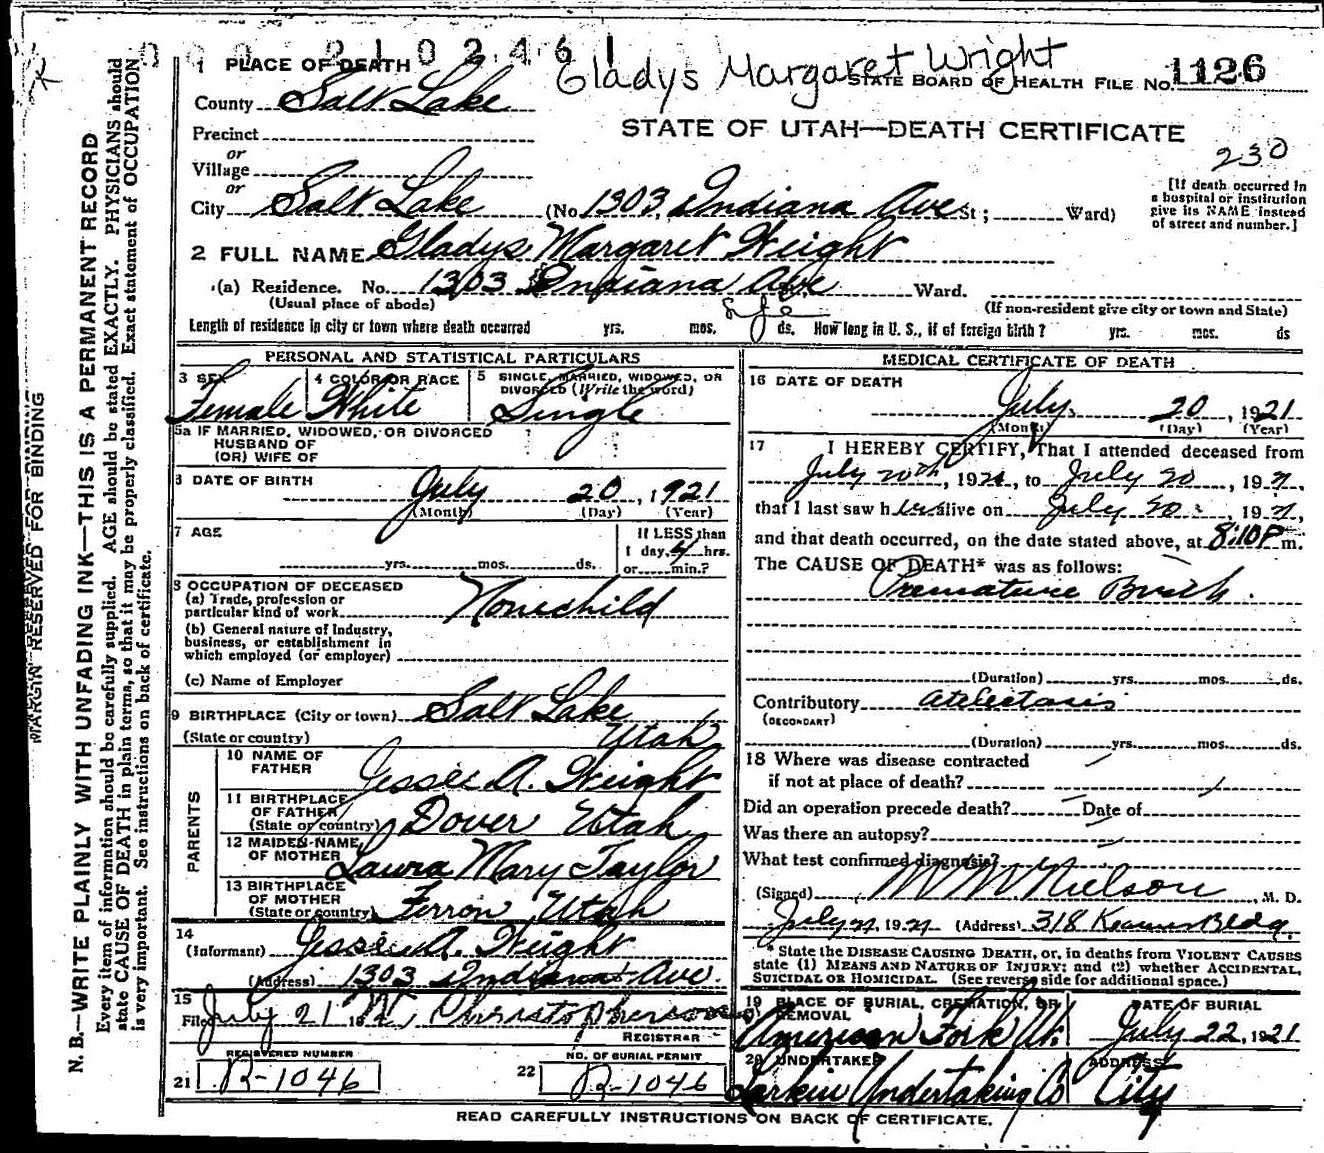 0 0 0 2 1 0 2 4 6 1
Gladys Margaret Wright
1 PLACE OF DEATH
STATE BOARD OF HEALTH FILE NO. 1126
County Salt Lake
STATE OF UTAH—DEATH CERTIFICATE
Precinct
or
230
Village
or
[If death occurred in
a hospital or institution
give its NAME instead
of street and number.]
City Salt Lake (No 1303 Indiana Ave St; Ward)
2 FULL NAME Gladys Margaret Weight
(a) Residence. No. 1303 Indiana Ave Ward.
(Usual place of abode) (If non-resident give city or town and State)
Length of residence in city or town where death occurred yrs. mos. life ds. How long in U. S., if of foreign birth? yrs. mos. ds
PERSONAL AND STATISTICAL PARTICULARS
3 SEX Female
4 COLOR OR RACE White
5 SINGLE, MARRIED, WIDOWED, OR
DIVORCED (Write the word)
Single
5a IF MARRIED, WIDOWED, OR DIVORCED
HUSBAND OF
(OR) WIFE OF
6 DATE OF BIRTH July 20, 1921
(Month) (Day) (Year)
7 AGE
yrs. mos. ds.
If LESS than
1 day, 4 hrs.
or min.?
8 OCCUPATION OF DECEASED
(a) Trade, profession or
particular kind of work None child
(b) General nature of industry,
business, or establishment in
which employed (or employer)
(c) Name of Employer
9 BIRTHPLACE (City or town) Salt Lake
(State or country) Utah
PARENTS
10 NAME OF
FATHER Jesse A. Weight
11 BIRTHPLACE
OF FATHER
(State or country) Dover Utah
12 MAIDEN NAME
OF MOTHER Laura Mary Taylor
13 BIRTHPLACE
OF MOTHER
(State or country) Ferron, Utah
14
(Informant) Jesse A. Weight
(Address) 1303 Indiana Ave.
15
Filed July 21 Christopherson
REGISTRAR
REGISTERED NUMBER
21 R-1046
NO. OF BURIAL PERMIT
22 R-1046
MEDICAL CERTIFICATE OF DEATH
16 DATE OF DEATH
July 20, 1921
(Month) (Day) (Year)
17 I HEREBY CERTIFY, That I attended deceased from
July 20th, 1921, to July 20, 1921,
that I last saw her alive on July 20, 1921,
and that death occurred, on the date stated above, at 8:10P m.
The CAUSE OF DEATH* was as follows:
Premature Birth.
(Duration) yrs. mos. ds.
Contributory atelectasis
(SECONDARY)
(Duration) yrs. mos. ds.
18 Where was disease contracted
if not at place of death?
Did an operation precede death? Date of
Was there an autopsy?
What test confirmed diagnosis?
(Signed) M M Nielson, M. D.
July 21, 1921 (Address) 318 Kearns Bldg.
* State the DISEASE CAUSING DEATH, or, in deaths from VIOLENT CAUSES
state (1) MEANS AND NATURE OF INJURY; and (2) whether ACCIDENTAL,
SUICIDAL OR HOMICIDAL. (See reverse side for additional space.)
19 PLACE OF BURIAL, CREMATION, OR
REMOVAL
American Fork Ut.
DATE OF BURIAL
July 22, 1921
20 UNDERTAKER
Larkin Undertaking Co
ADDRESS
City
READ CAREFULLY INSTRUCTIONS ON BACK OF CERTIFICATE.
MARGIN RESERVED FOR BINDING
N. B.—WRITE PLAINLY WITH UNFADING INK—THIS IS A PERMANENT RECORD
Every item of information should be carefully supplied. AGE should be stated EXACTLY. PHYSICIANS should
state CAUSE OF DEATH in plain terms, so that it may be properly classified. Exact statement of OCCUPATION
is very important. See instructions on back of certificate.